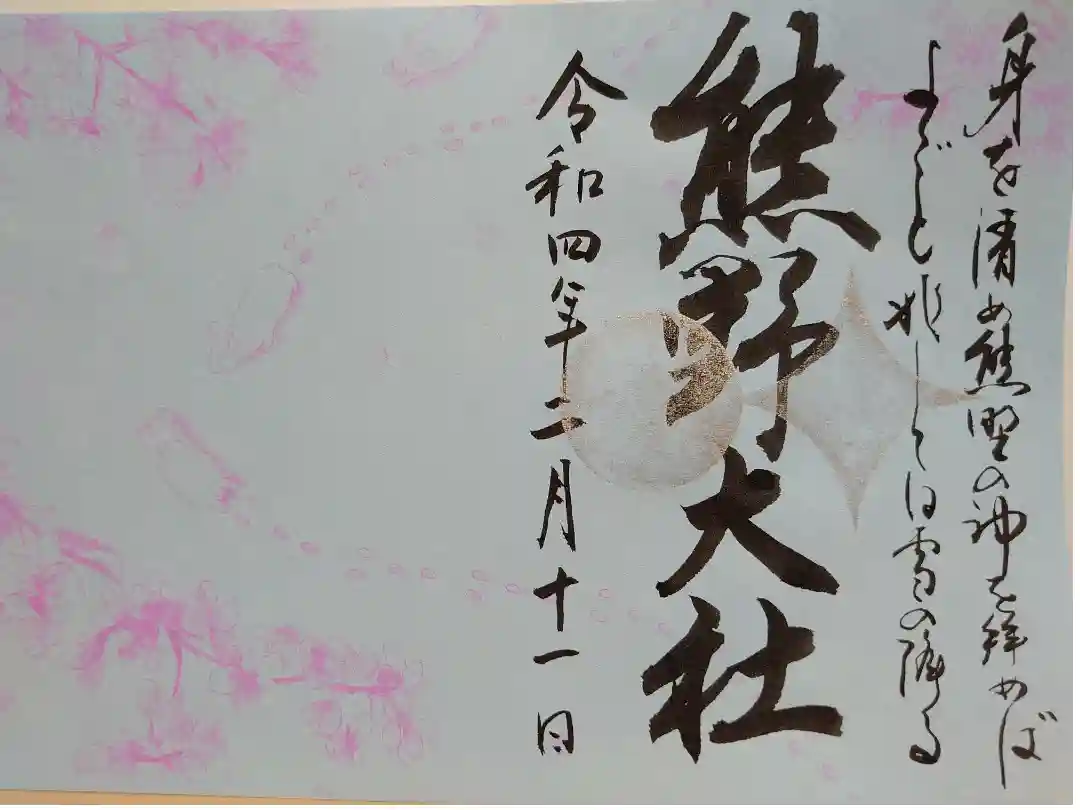 身を清め熊野の神を拝めば
よごと兆して白雪の降る
熊野大社
令和四年二月十一日